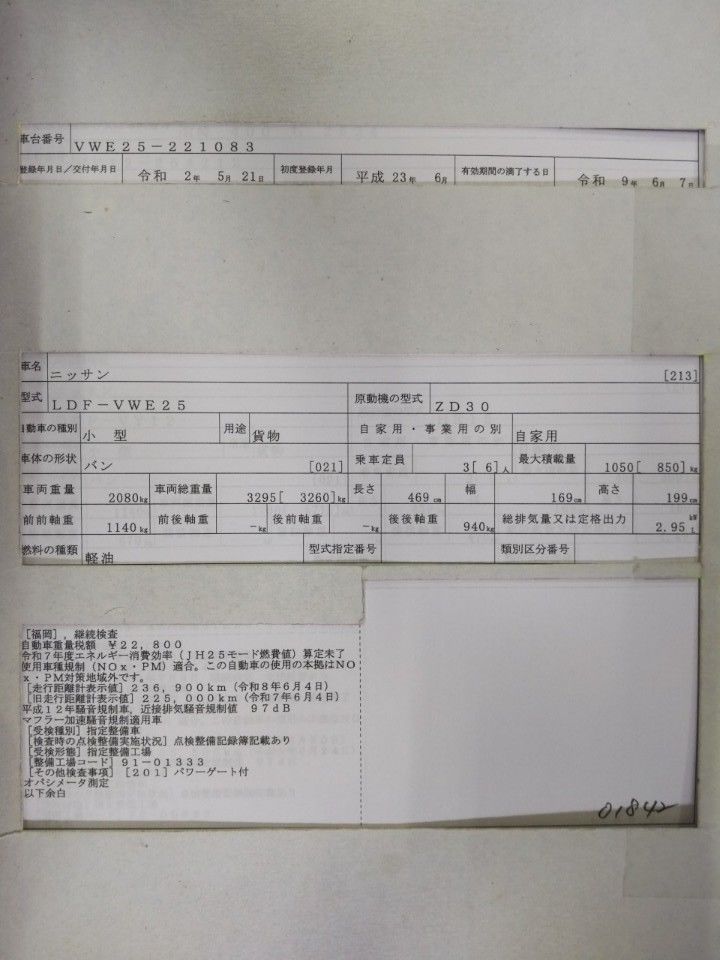 車台番号 VWE25-221083
登録年月日/交付年月日 令和 2年 5月 21日 初度登録年月 平成 23年 6月 有効期間の満了する日 令和 9年 6月 7日
車名 ニッサン [213]
型式 LDF-VWE25 原動機の型式 ZD30
自動車の種別 小型 用途 貨物 自家用・事業用の別 自家用
車体の形状 バン [021] 乗車定員 3[ 6]人 最大積載量 1050[ 850]kg
車両重量 2080kg 車両総重量 3295[ 3260]kg 長さ 469cm 幅 169cm 高さ 199cm
前前軸重 1140kg 前後軸重 -kg 後前軸重 -kg 後後軸重 940kg 総排気量又は定格出力 2.95 kW L
燃料の種類 軽油 型式指定番号 類別区分番号
[福岡],継続検査
自動車重量税額 ¥22,800
令和7年度エネルギー消費効率(JH25モード燃費値)算定未了
使用車種規制(NOx・PM)適合。この自動車の使用の本拠はNO
x・PM対策地域外です。
[走行距離計表示値]236,900km(令和8年6月4日)
[旧走行距離計表示値]225,000km(令和7年6月4日)
平成12年騒音規制車、近接排気騒音規制値 97dB
マフラー加速騒音規制適用車
[受検種別]指定整備車
[検査時の点検整備実施状況]点検整備記録簿記載あり
[受検形態]指定整備工場
[整備工場コード]91-01333
[その他検査事項][201]パワーゲート付
オパシメータ測定
以下余白
01842